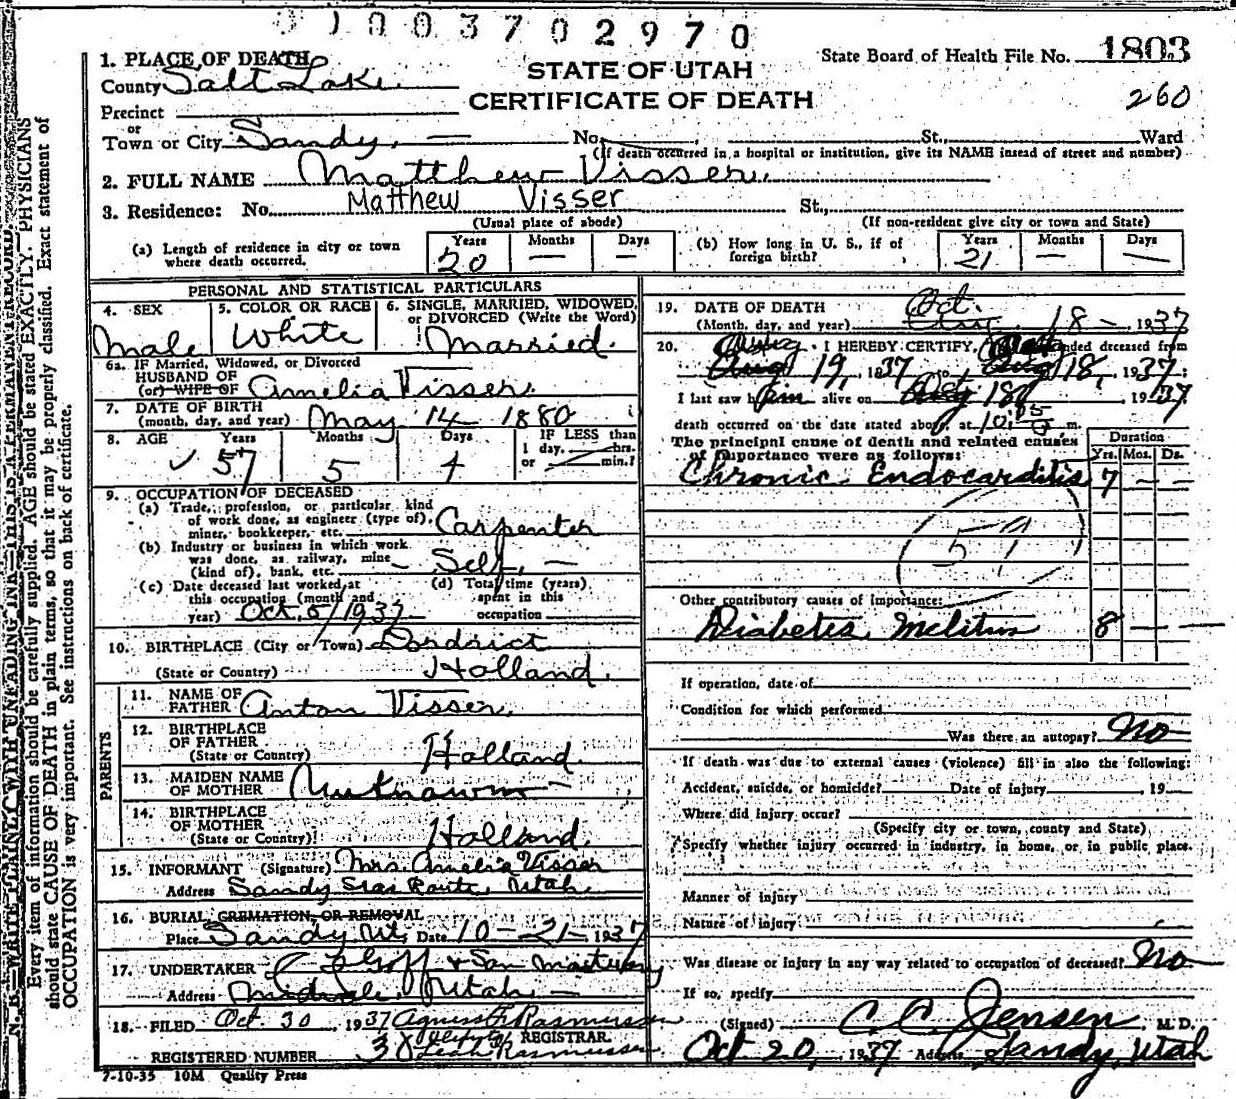 01003702970
1. PLACE OF DEATH
County Salt Lake.
STATE OF UTAH
CERTIFICATE OF DEATH
State Board of Health File No. 1803
260
Precinct
or
Town or City Sandy, No. St., Ward
(If death occurred in a hospital or institution, give its NAME insead of street and number)
2. FULL NAME Matthew Visser.
3. Residence: No. Matthew Visser St.,
(Usual place of abode) (If non-resident give city or town and State)
(a) Length of residence in city or town where death occurred. Years 20 Months — Days —
(b) How long in U. S., if of foreign birth? Years 21 Months — Days —
PERSONAL AND STATISTICAL PARTICULARS
4. SEX Male
5. COLOR OR RACE White
6. SINGLE, MARRIED, WIDOWED, or DIVORCED (Write the Word) Married.
6a. IF Married, Widowed, or Divorced
HUSBAND OF
(or) WIFE OF Amelia Visser.
7. DATE OF BIRTH
(month, day, and year) May 14 1880
8. AGE Years 57 Months 5 Days 4 IF LESS than 1 day, hrs. or min.?
9. OCCUPATION OF DECEASED
(a) Trade, profession, or particular kind
of work done, as engineer (type of),
miner, bookkeeper, etc. Carpenter
(b) Industry or business in which work
was done, as railway, mine
(kind of), bank, etc. Self, —
(c) Date deceased last worked at
this occupation (month and
year) Oct. 5/1937
(d) Total time (years)
spent in this
occupation
10. BIRTHPLACE (City or Town) Dordrict
(State or Country) Holland.
PARENTS
11. NAME OF
FATHER Anton Visser.
12. BIRTHPLACE
OF FATHER
(State or Country) Holland
13. MAIDEN NAME
OF MOTHER Unknown —
14. BIRTHPLACE
OF MOTHER
(State or Country) Holland.
15. INFORMANT (Signature) Mrs. Amelia Visser
Address Sandy Star Route, Utah.
16. BURIAL, CREMATION, OR REMOVAL
Place Sandy Ut. Date 10-21-1937
17. UNDERTAKER Goff & Son Mortuary
Address Midvale, Utah —
18. FILED Oct. 30 1937 Agnes Rasmussen
REGISTRAR.
REGISTERED NUMBER 38 Leah Rasmussen
7-10-35 10M Quality Press
19. DATE OF DEATH
(Month, day, and year) Oct. 18 - 1937
20. I HEREBY CERTIFY, ended deceased from
Aug 19, 1937 to 18, 1937;
I last saw him alive on Oct 18, 1937
death occurred on the date stated above, at 10: m.
The principal cause of death and related causes
of importance were as follows:
Duration
Yrs. Mos. Ds.
Chronic Endocarditis 7 — —
Other contributory causes of importance:
Diabetes Melitus 8 — —
If operation, date of
Condition for which performed
Was there an autopsy? No
If death was due to external causes (violence) fill in also the following:
Accident, suicide, or homicide? Date of injury , 19
Where did injury occur?
(Specify city or town, county and State)
Specify whether injury occurred in industry, in home, or in public place.
Manner of injury
Nature of injury
Was disease or injury in any way related to occupation of deceased? No
If so, specify
(Signed) C. C. Jensen, M. D.
Oct 20, 1937 Address Sandy, Utah
N. B.—WRITE PLAINLY, WITH UNFADING INK—THIS IS A PERMANENT RECORD.
Every item of information should be carefully supplied. AGE should be stated EXACTLY. PHYSICIANS
should state CAUSE OF DEATH in plain terms, so that it may be properly classified. Exact statement of
OCCUPATION is very important. See instructions on back of certificate.